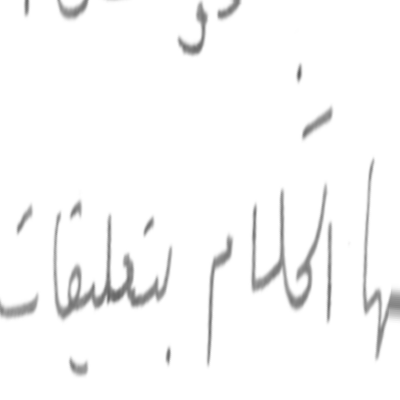 ها الكلام بتعليقات